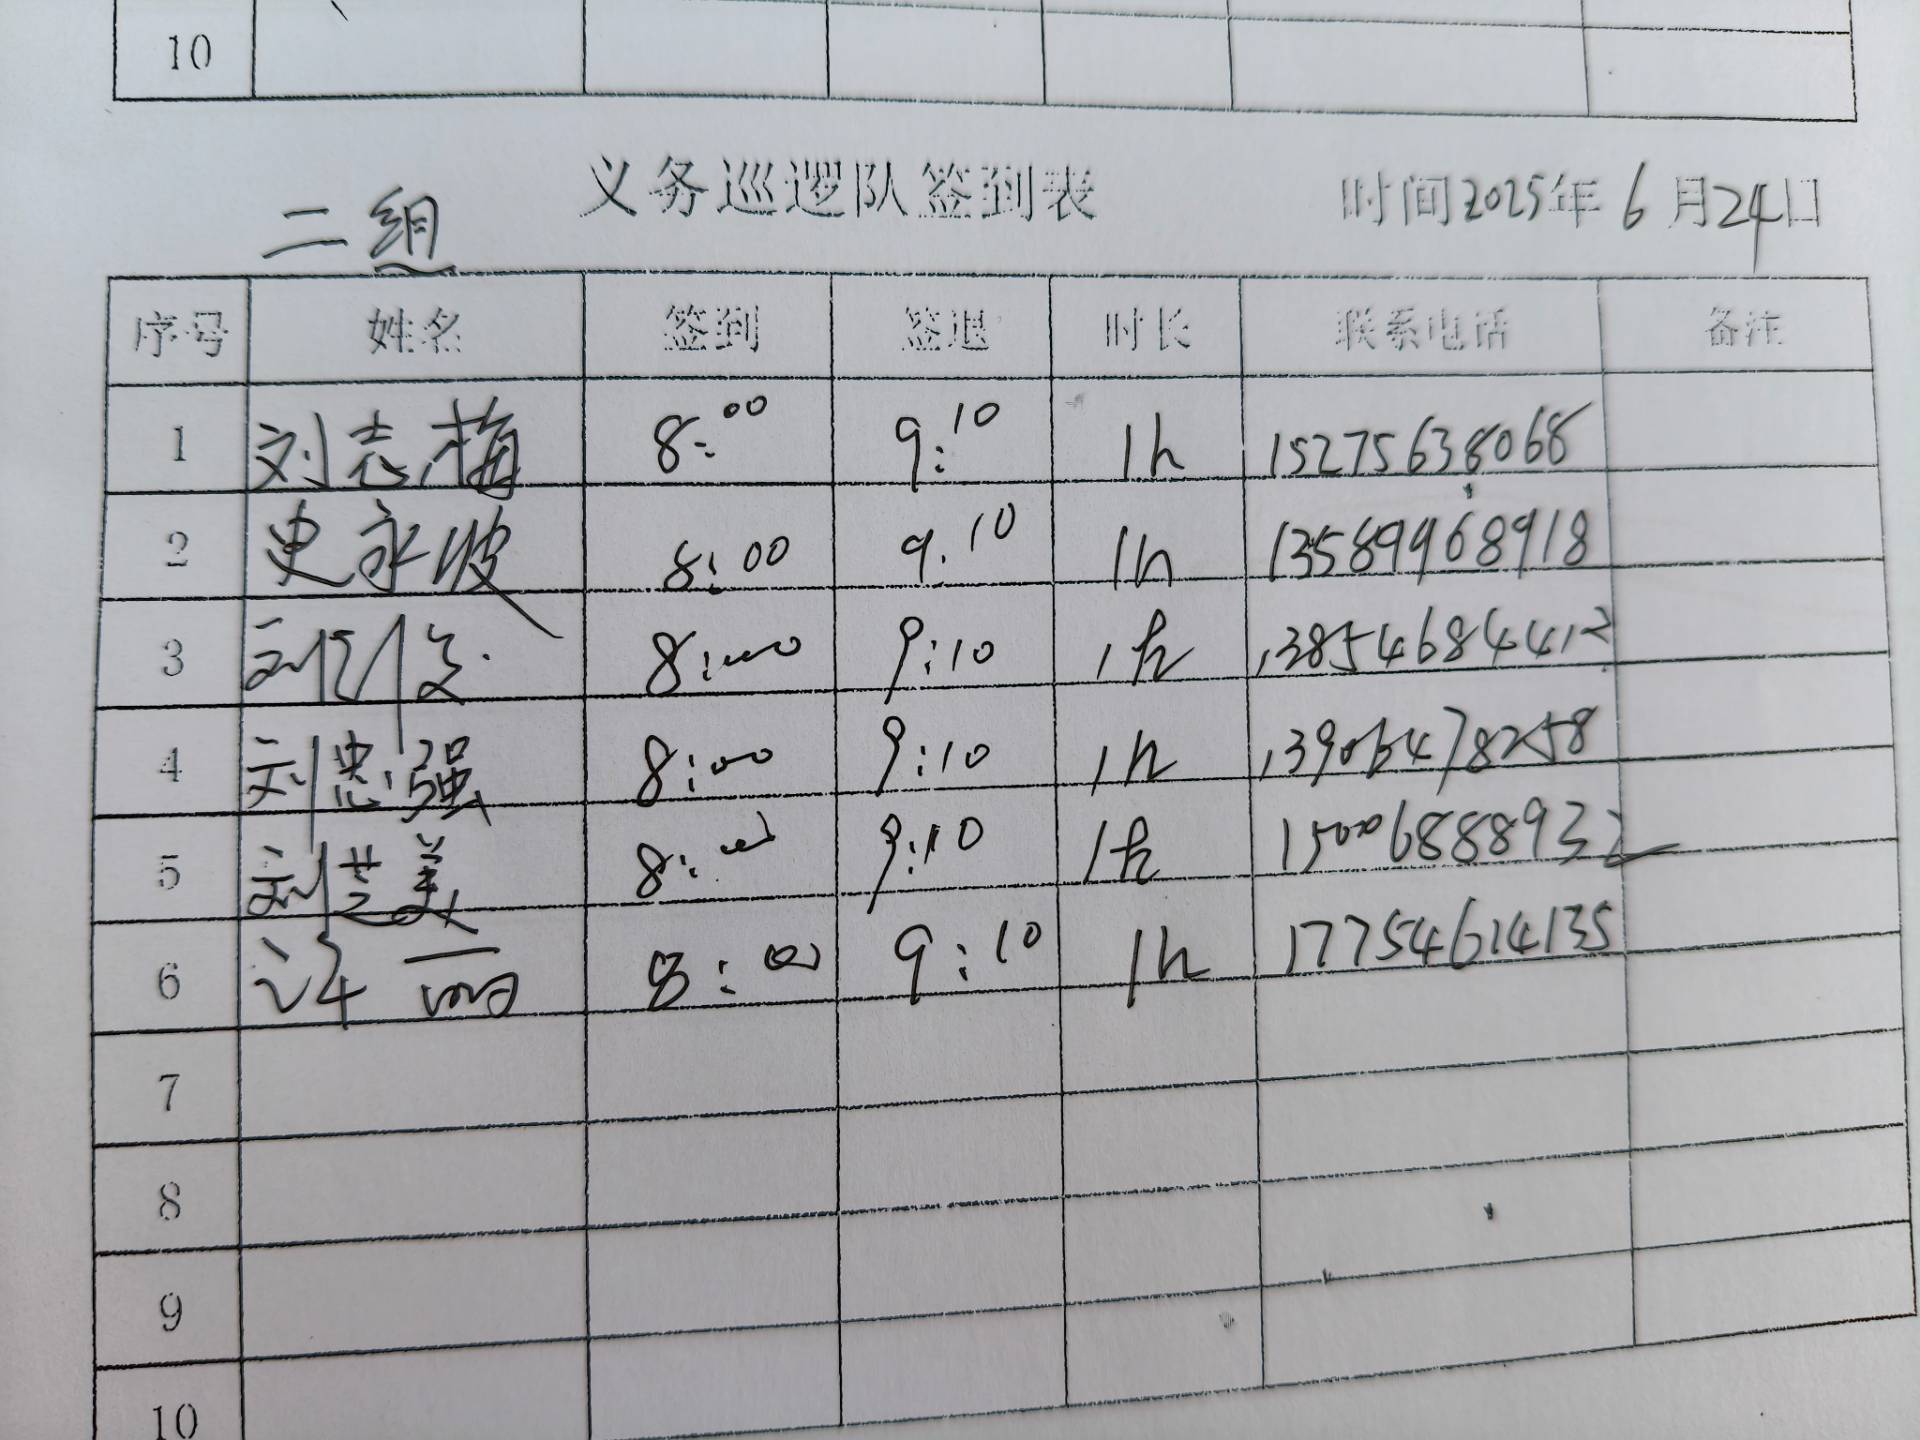 10
义务巡逻队签到表
二组 时间2025年6月24日
序号 姓名 签到 签退 时长 联系电话 备注
1 刘志梅 8:00 9:10 1h 15275638068
2 史永波 8:00 9.10 1h 13589968918
3 8:00 9:10 1h 13854684412
4 刘忠强 8:00 9:10 1h 13906478258
5 刘芝美 8:00 9:10 1h 15006888932
6 许丽 8:00 9:10 1h 17754614135
7
8
9
10